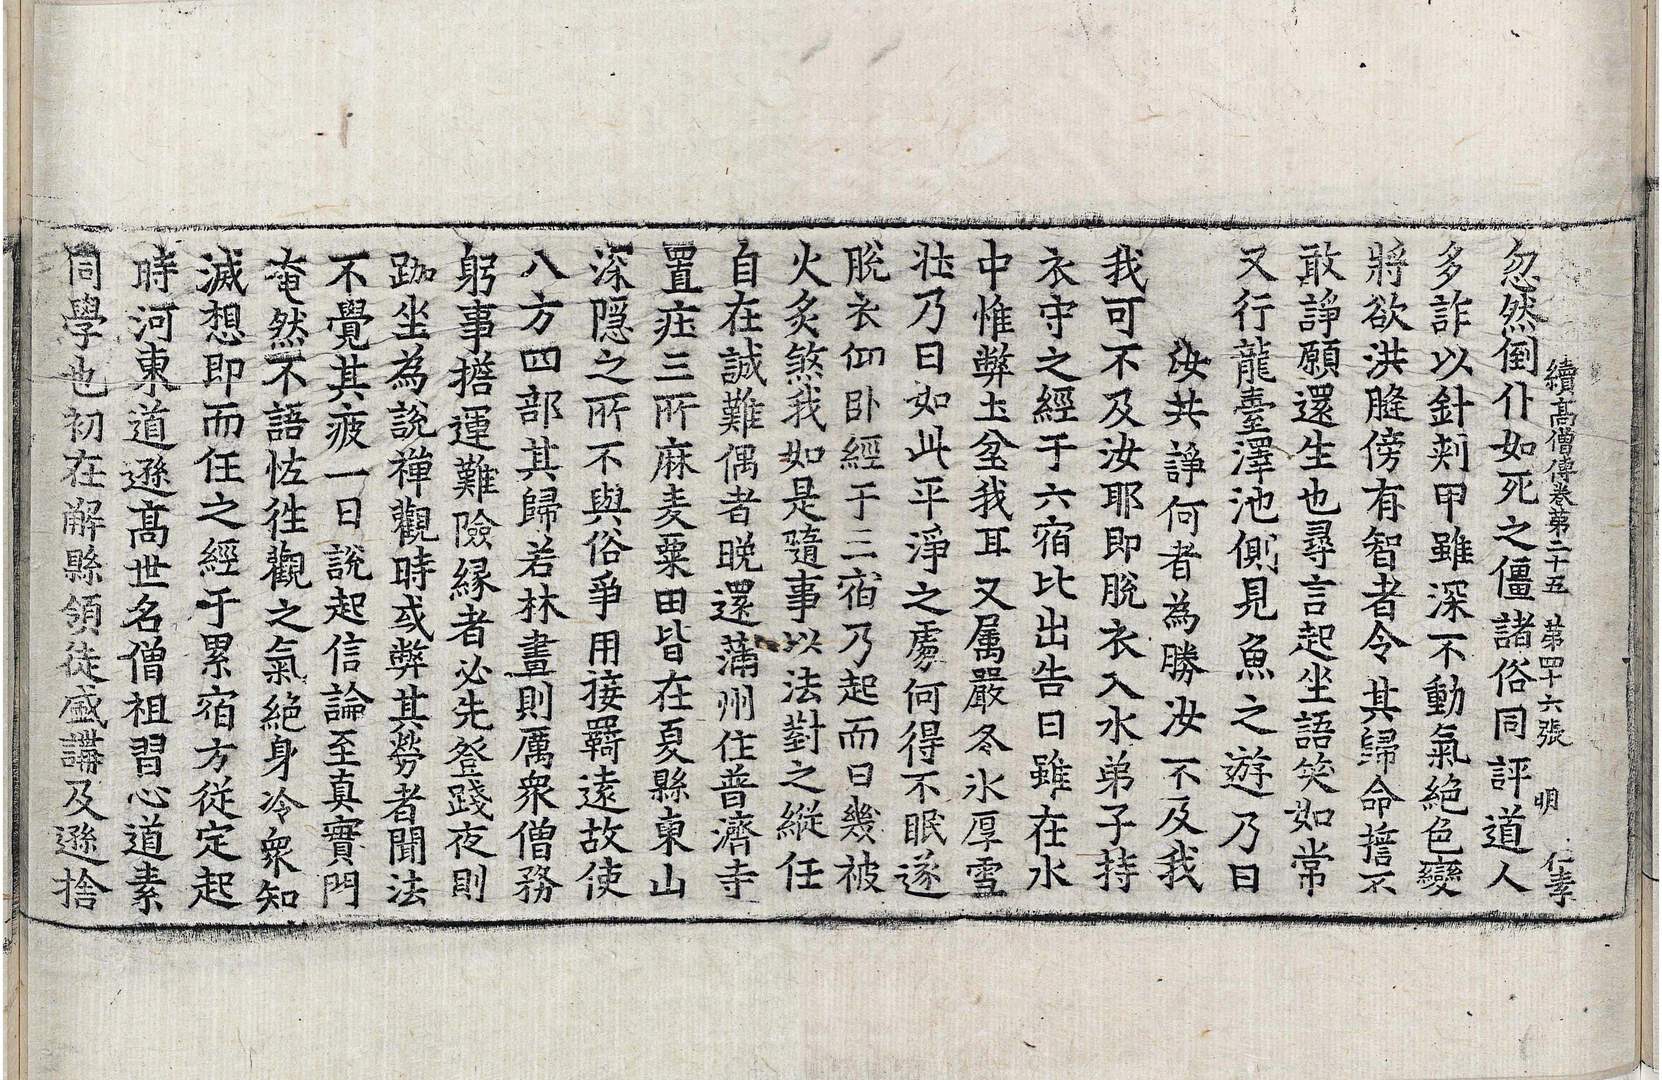 續高僧傳卷第二十五 第四十六張 明 仁素
忽然倒仆如死之僵諸俗同評道人
多詐以針刾甲雖深不動氣絕色變
將欲洪膖傍有智者令其歸命擔不
敢諍願還生也尋言起坐語笑如常
又行龍臺澤池側見魚之遊乃曰
汝共諍何者為勝汝不及我
我可不及汝耶即脫衣入水弟子持
衣守之經于六宿比出告曰雖在水
中惟弊土坌我耳又属嚴冬氷厚雪
壮乃曰如此平淨之䖏何得不眠遂
脫衣仰卧經于三宿乃起而曰幾被
火炙煞我如是隨事以法對之縱任
自在誠難偶者晚還蒲州住普濟寺
置庄三所麻麦粟田皆在夏縣東山
深隱之所不與俗爭用接羇遠故使
八方四部其歸若林晝則厲衆僧務
躬事擔運難險緣者必先登踐夜則
跏坐為說禪觀時或弊其勞者聞法
不覺其疲一日說起信論至真實門
奄然不語恠徃觀之氣絕身冷衆知
滅想即而任之經于累宿方從定起
時河東道遜高世名僧祖習心道素
同學也初在解縣領徒盛講及遜捨